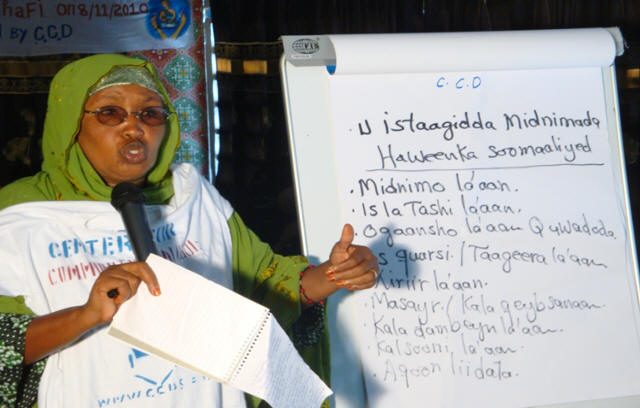 HAFI on 8/11/2010
BY C.C.D
C.C.D
istaagidda Midnimada
Haweenka Soomaaliyed
. Midnimo la'aan.
. Is la Tashi la'aan.
. Ogaansho la'aan Quwadoda.
quarsi. / Taageera la'aan
Xiriir la'aan.
Masayr. / Kala qeybsanaan.
Kala dambeyn la'aan.
Kalsooni la'aan.
Aqoon liidata.
CENTER FOR
COMMUNITY
www.ccds